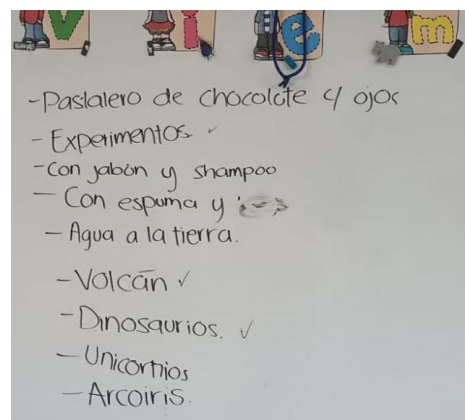 v i e m
-Pastalero de chocolate y ojos
- Experimentos. ✓
-con jabón y shampoo
- Con espuma y
- Agua a la tierra.
-Volcán ✓
-Dinosaurios. ✓
-Unicornios
-Arcoiris.